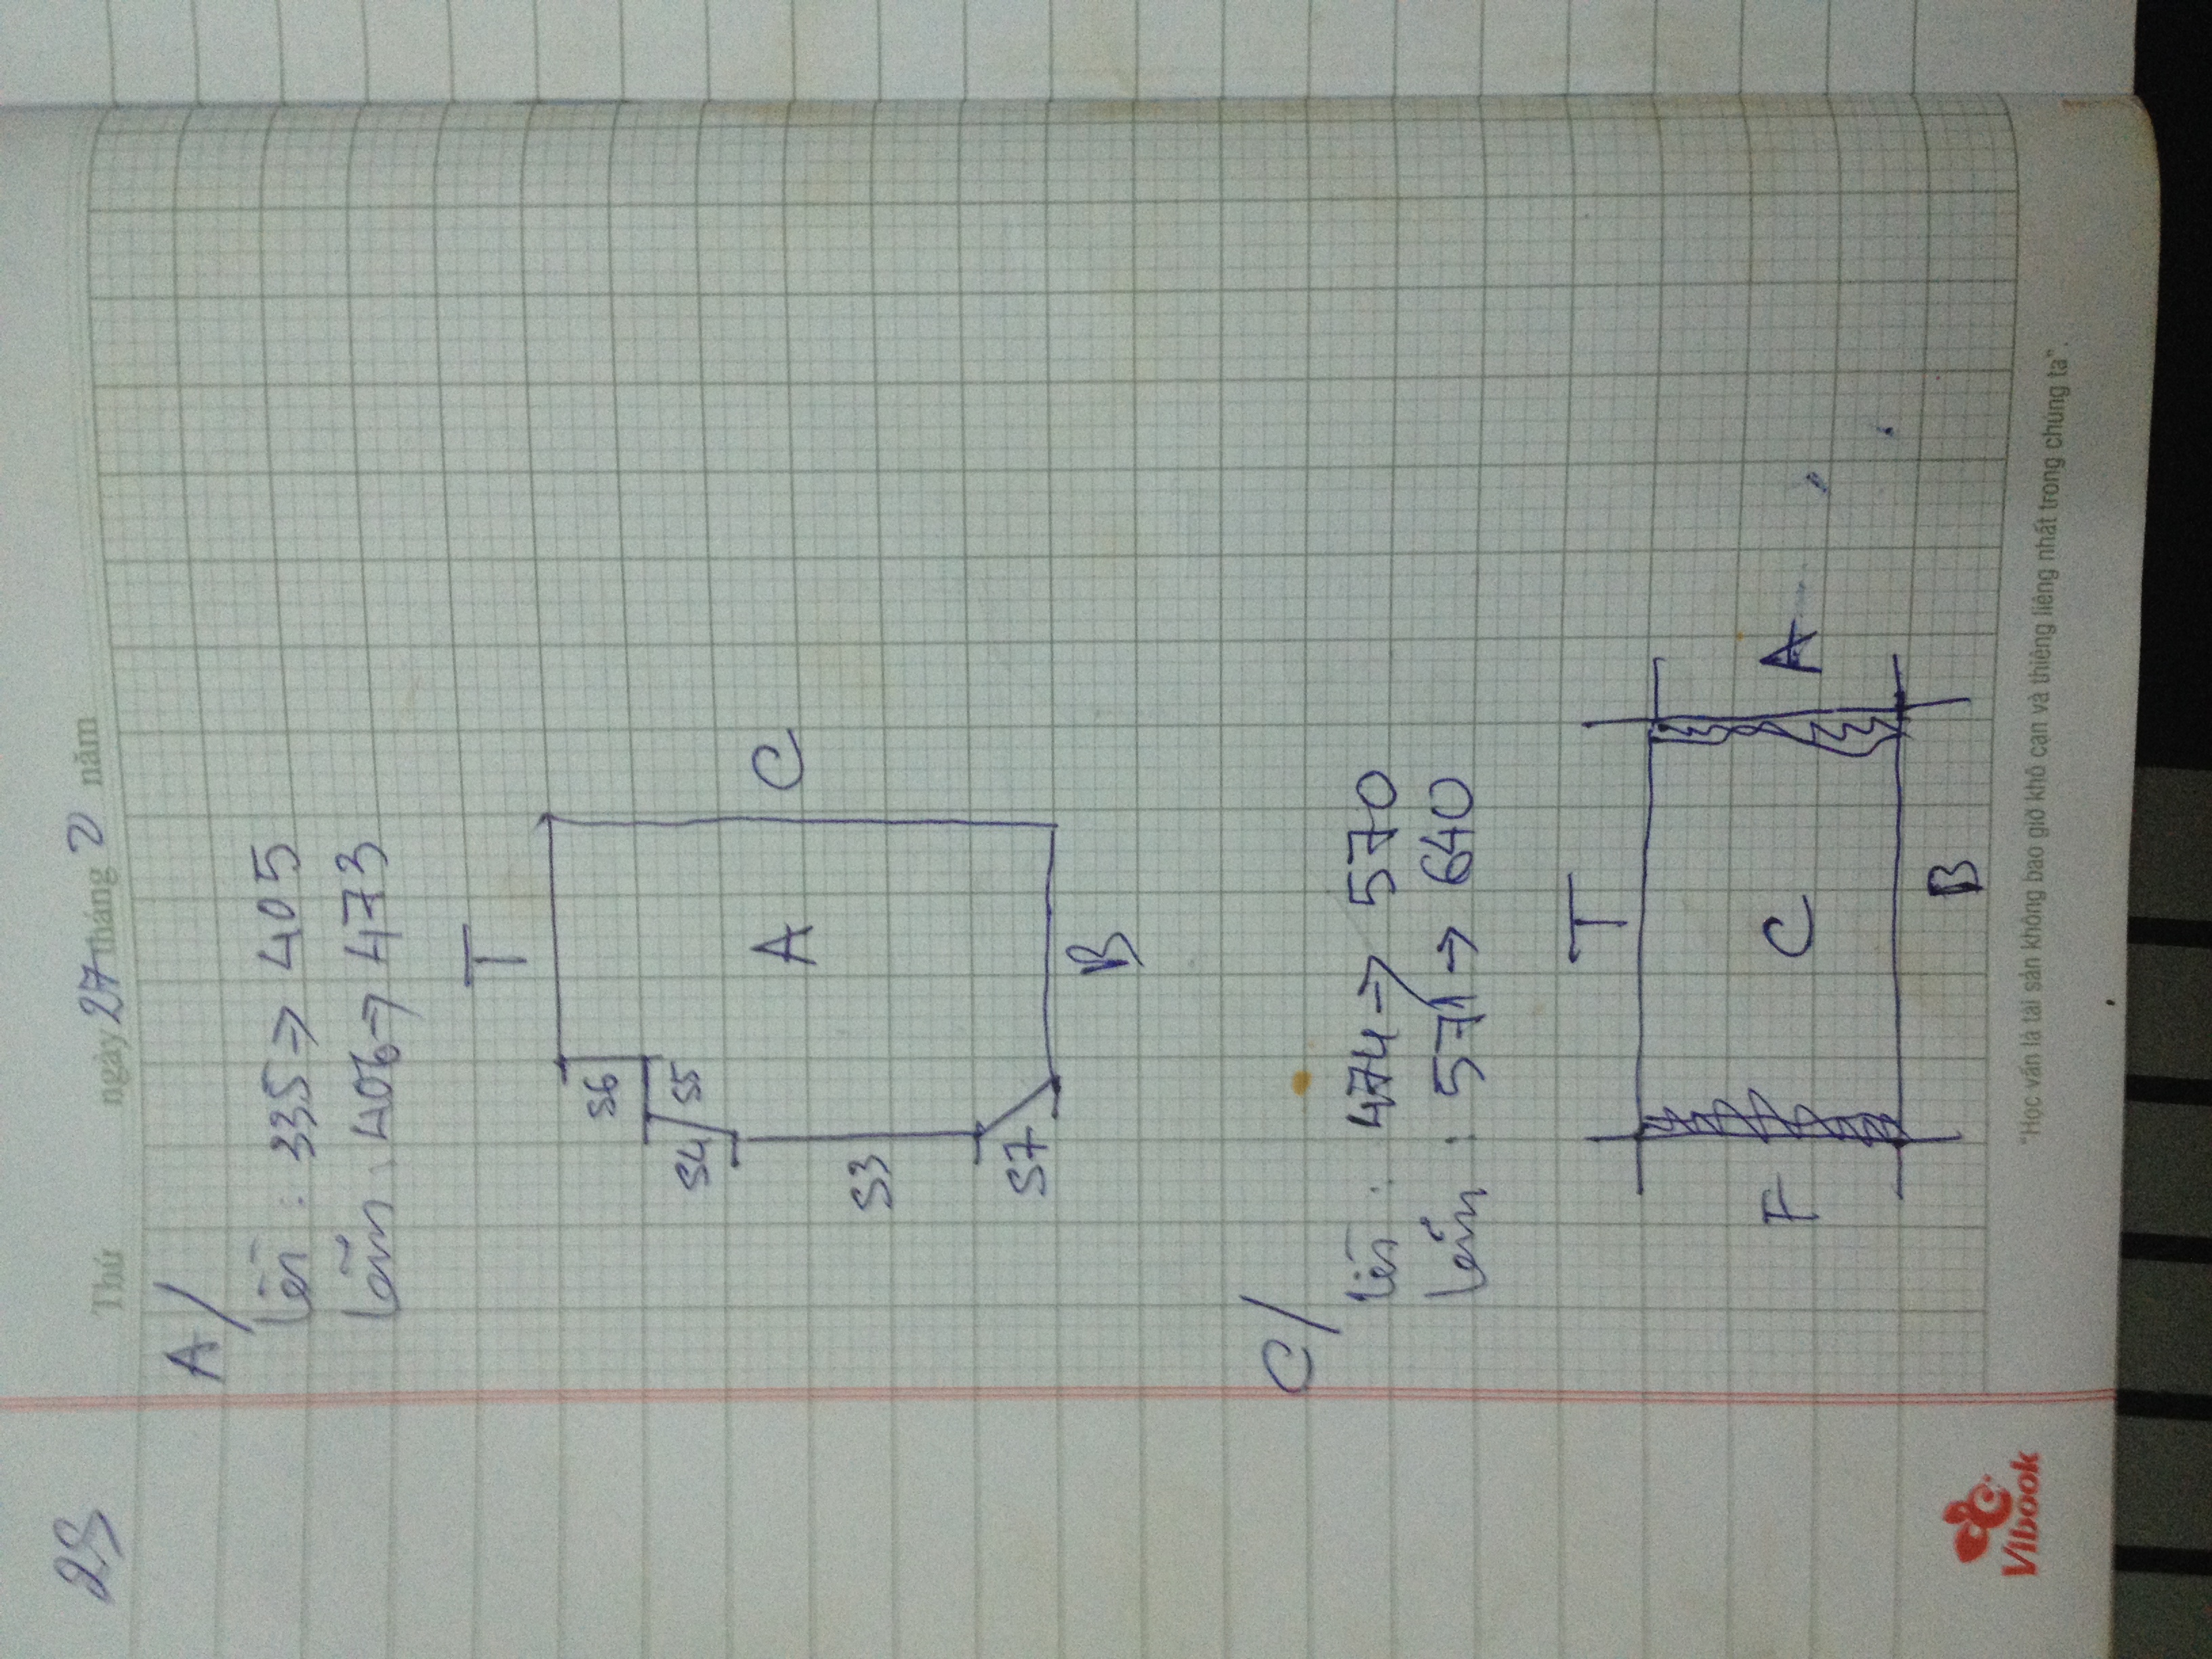 29
Thứ ngày 27 tháng 2 năm
A/
lồi : 335 → 405
lõm : 406 → 473
T
S6
S4 S5
A C
S3
S7
B
C/
lồi : 474 → 570
lõm : 571 → 640
T
F C A
B
Vibook
"Học vấn là tài sản không bao giờ khô cạn và thiêng liêng nhất trong chúng ta".